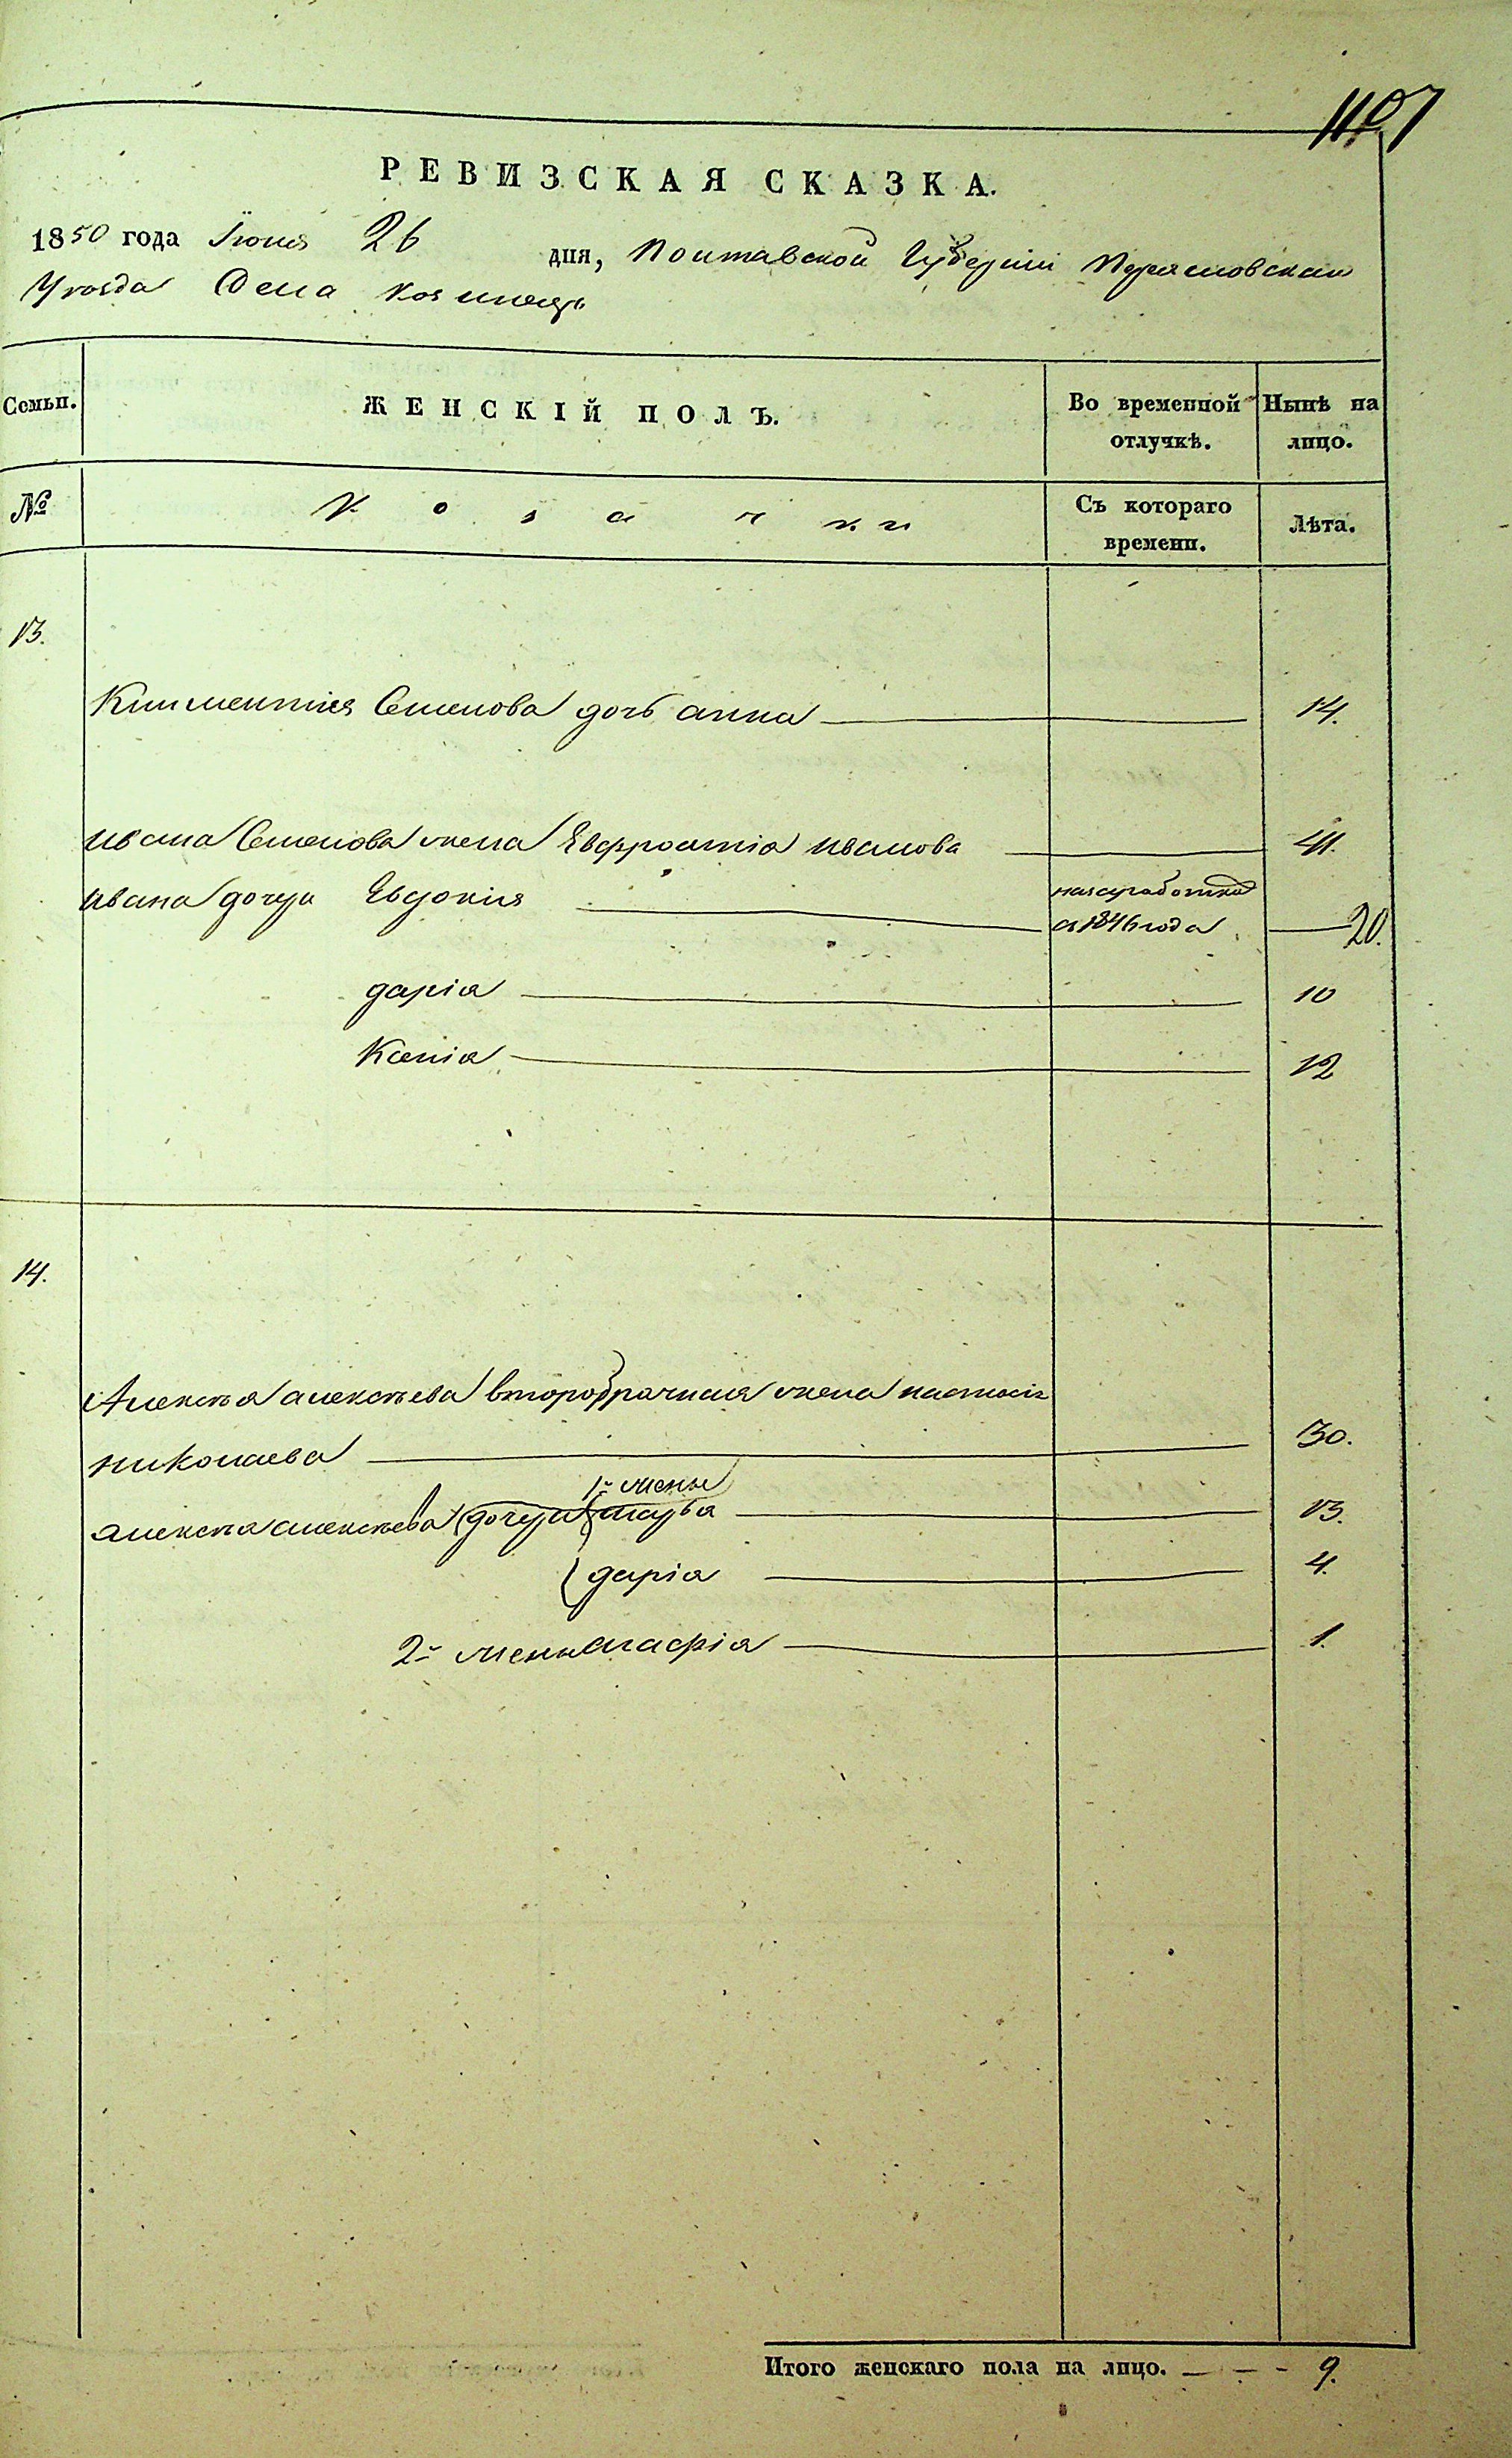 1107
РЕВИЗСКАЯ СКАЗКА.
1850 года Іюня 26 дня, Полтавской Губерніи Переяславскаго
Уезда Села Козинецъ
Семьи. ЖЕНСКІЙ ПОЛЪ. Во временной отлучкѣ. Нынѣ на лицо.
№ Козачки Съ котораго времени. Лѣта.
13.
Климентія Семенова дочь анна 14.
ивана Семенова жена Евфросинія иванова 41.
ивана дочери Евдокия на заработках с 1846 года 20.
даріа 10
Ксеніа 12
14.
Алексѣя алексѣева второбрачная жена настасіа
николаева 30.
1й жены
алексѣя алексѣева дочери марва 13.
даріа 4.
2й жены агафіа 1.
Итого женскаго пола на лицо. 9.